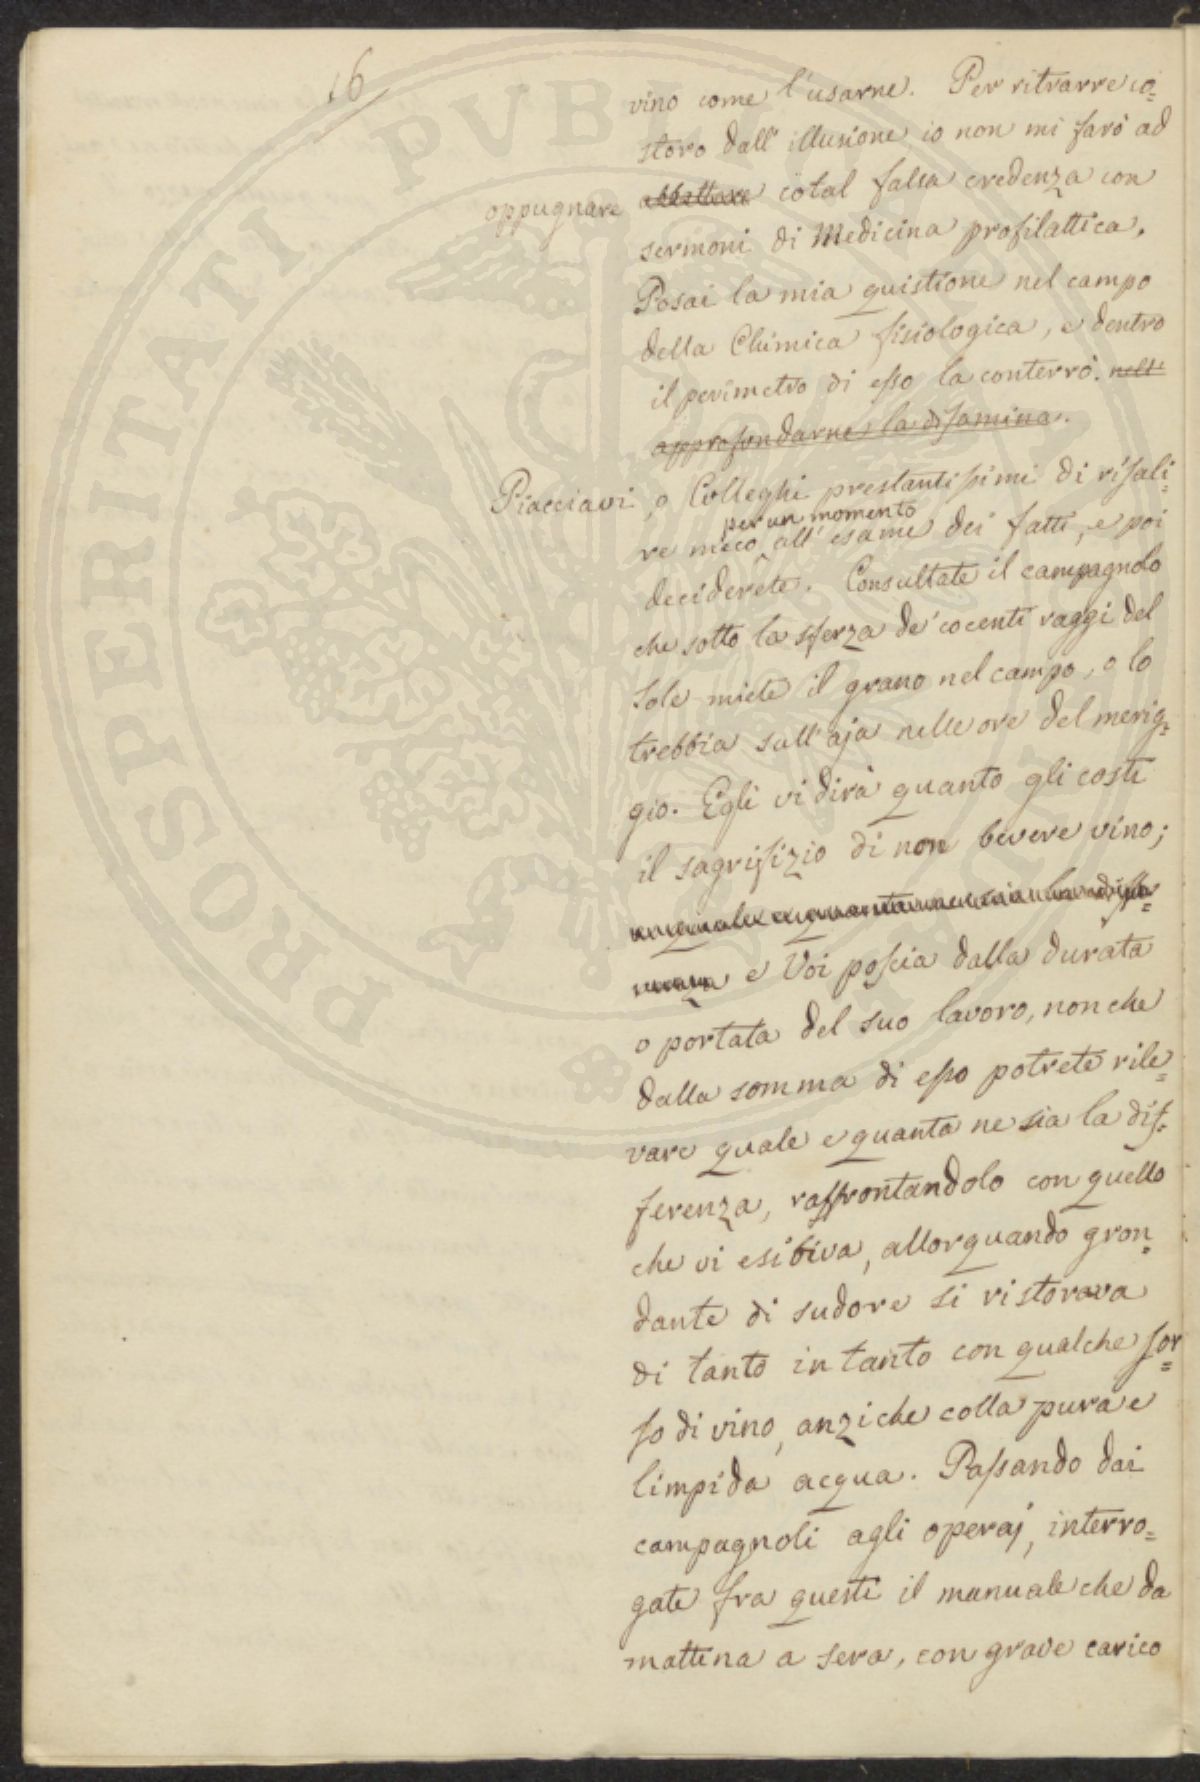 16
vino come l'usarne. Per ritrarre co=
storo dall'illusione io non mi farò ad
oppugnare abbattere cotal falsa credenza con
sermoni di Medicina profilattica.
Posai la mia quistione nel campo
della Chimica fisiologica, e dentro
il perimetro di esso la conterrò. nell'
approfondarne la disamina.
Piacciavi, o Colleghi prestantissimi di risali=
per un momento
re meco all'esame dei fatti, e poi
deciderete. Consultate il campagnolo
che sotto la sferza de' cocenti raggi del
sole miete il grano nel campo, o lo
trebbia sull'aja nelle ore del merig=
gio. Egli vi dirà quanto gli costi
il sagrifizio di non bevere vino;
e Voi poscia dalla durata
o portata del suo lavoro, non che
dalla somma di esso potrete rile=
vare quale e quanta ne sia la dif=
ferenza, raffrontandolo con quello
che vi esibiva, allorquando gron=
dante di sudore si ristorava
di tanto in tanto con qualche sor=
so di vino, anziche colla pura e
limpida acqua. Passando dai
campagnoli agli operaj, interro=
gate fra questi il manuale che da
mattina a sera, con grave carico
PROSPERITATI PUBLICAE